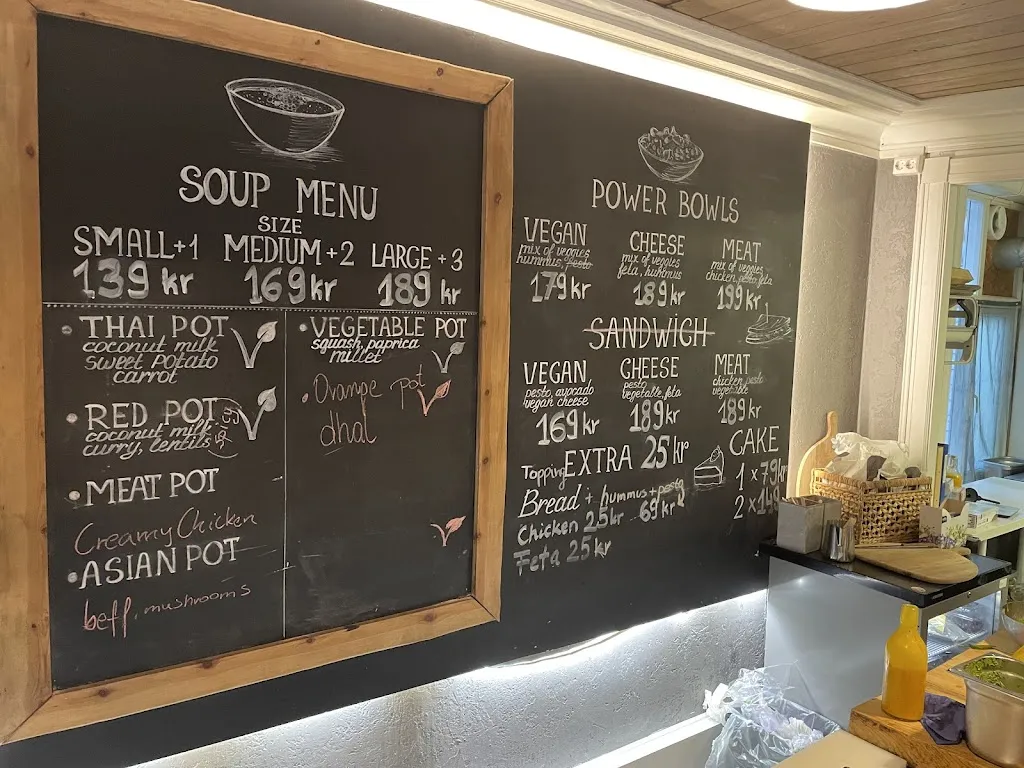 SOUP MENU
SIZE
SMALL+1 MEDIUM+2 LARGE+3
139 kr 169kr 189 kr
• THAI POT
coconut milk
sweet potato
carrot
• RED POT
coconut milk
curry, lentils
• MEAT POT
Creamy Chicken
• ASIAN POT
beff, mushrooms
• VEGETABLE POT
squash, paprica
millet
• Orange pot
dhal
POWER BOWLS
VEGAN
mix of veggies
hummus, pesto
179kr
CHEESE
mix of veggies
feta, hummus
189kr
MEAT
mix of veggies
chicken, pesto, feta
199kr
SANDWICH
VEGAN
pesto, avocado
vegan cheese
169kr
CHEESE
pesto
vegetable, feta
189kr
MEAT
chicken, pesto
vegetable
189kr
Topping EXTRA 25 kr
Bread + hummus+pesto
69kr
Chicken 25kr
Feta 25kr
CAKE
1 x 79kr
2 x